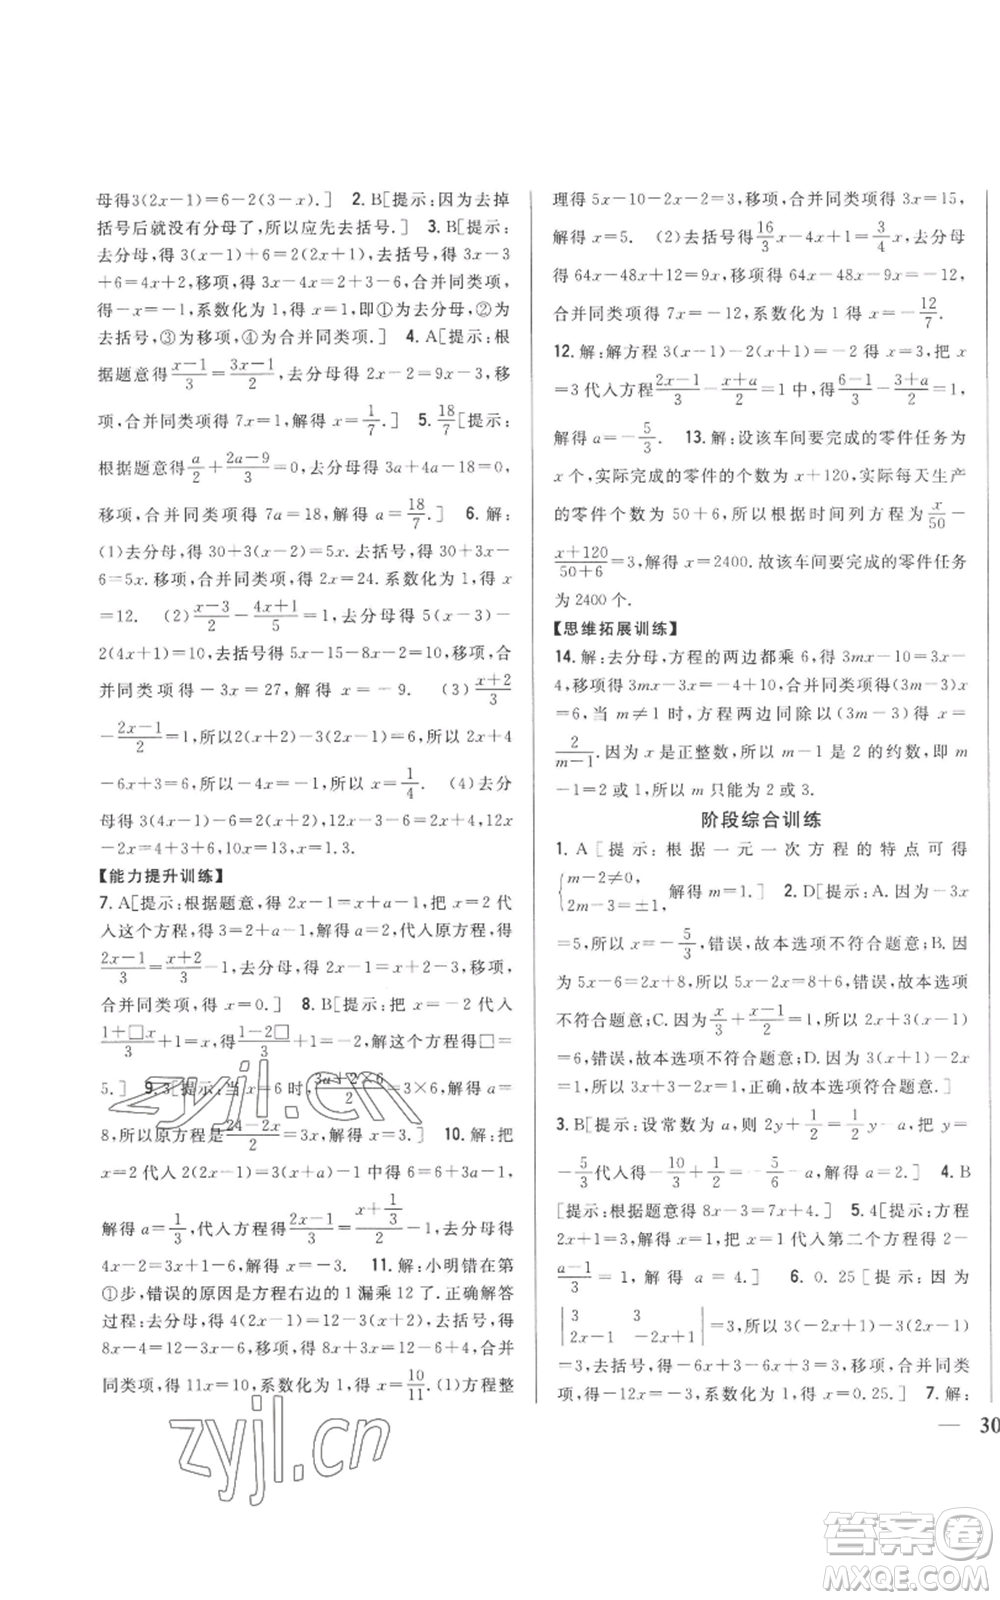 母得3(2x-1)=6-2(3-x).] 2. B[提示:因为去掉
括号后就没有分母了,所以应先去括号.] 3. B[提示:
去分母,得 3(x-1)+6=2(2x+1),去括号,得 3x-3
+6=4x+2,移项,得 3x-4x=2+3-6,合并同类项,
得-x=-1,系数化为 1,得 x=1,即①为去分母,②为
去括号,③为移项,④为合并同类项.] 4. A[提示:根
据题意得 (x-1)/3=(3x-1)/2,去分母得 2x-2=9x-3,移
项,合并同类项得 7x=1,解得 x=1/7.] 5. 18/7[提示:
根据题意得 a/2+(2a-9)/3=0,去分母得 3a+4a-18=0,
移项,合并同类项得 7a=18,解得 a=18/7.] 6. 解:
(1)去分母,得 30+3(x-2)=5x. 去括号,得 30+3x
-6=5x. 移项,合并同类项,得 2x=24. 系数化为 1,得 x
=12. (2) (x-3)/2-(4x+1)/5=1,去分母得 5(x-3)-
2(4x+1)=10,去括号得 5x-15-8x-2=10,移项合
并同类项得-3x=27,解得 x=-9. (3) (x+2)/3
-(2x-1)/2=1,所以2(x+2)-3(2x-1)=6,所以 2x+4
-6x+3=6,所以-4x=-1,所以 x=1/4. (4)去分
母得 3(4x-1.5)-6=2(5x-0.8),去括号得12x-
【能力提升训练】
7. A[提示:根据题意,得 2x-1=x+a-1,把 x=2 代
人这个方程,得 3=2+a-1,解得 a=2,代入原方程,得
(2x-1)/3=(x+2)/3-1,去分母得 2x-1=x+2-3,移项,
合并同类项,得 x=0.] 8. B[提示:把 x=-2 代入
(1+□x)/3+1=x,得 (1-2□)/3+1=-2,解这个方程得□=
5.] 9. 3[提示:当 x=6 时,(3a+2×6)/2=3×6,
8,所以原方程是 (24-2x)/2=3x,解得 x=3.] 10. 解:把
x=2 代入 2(2x-1)=3(x+a)-1 中得 6=6+3a-1,
解得 a=1/3,代入方程得 (2x-1)/3=(x+1/3)/3-1,去分母得
4x-2=3x+1-6,解得 x=-3. 11. 解:小明错在第
①步,错误的原因是方程右边的 1 漏乘 12 了. 正确解答
过程:去分母,得 4(2x-1)=12-3(x-2),去括号,得
8x-4=12-3x+6,移项,得 8x+3x=12+6+4,合并
同类项,得 11x=22
理得 5x-10-2x-2=3,移项,合并同类项得 3x=15,
解得 x=5. (2)去括号得 16/3x-4x+1=3/4x,去分母
得 64x-48x+12=9x,移项得 64x-48x-9x=-12,
合并同类项得 7x=-12,系数化为 1,得 x=-12/7.
12. 解:解方程 3(x-1)-2(x+1)=-2 得 x=3,把 x
=3 代入方程 (2x-1)/3-(x+a)/2=1 中,得 (6-1)/3-(3+a)/2=1,
解得 a=-5/3. 13. 解:设该车间要完成的零件任务为
x 个,实际完成的零件的个数为 x+120,实际每天生产
的零件个数为 50+6,所以根据时间列方程为 x/50-
(x+120)/(50+6)=3,解得 x=2400. 故该车间要完成的零件任务
为 2400 个.
【思维拓展训练】
14. 解:去分母,方程的两边都乘 6,得 3mx-10=3x-
4,移项得 3mx-3x=-4+10,合并同类项得(3m-3)x
=6,当 m≠1 时,方程两边同除以(3m-3)得 x=
2/(m-1). 因为 x 是正整数,所以 m-1 是 2 的约数,即 m
-1=2或1,所以 m 只能为 2 或 3.
阶段综合训练
1. A[提示:根据一元一次方程的特点可得
{m-2≠0, 2m-3=±1, 解得 m=1.] 2. D[提示:A. 因为-3x
=5,所以 x=-5/3,错误,故本选项不符合题意;B. 因
为 5x-6=2x-8,所以 5x-2x=-8+6,错误,故本选项
不符合题意;C. 因为 x/3+(x-1)/2=1,所以 2x+3(x-1)
=6,错误,故本选项不符合题意;D. 因为 3x=1-2x
=1,所以 3x+2x=1,正确,故本选项符合题意.]
3. B[提示:设常数为 a,则 2y+1/2=1/2y-a,把 y=
-5/3代入得-10/3+1/2=-5/6-a,解得 a=2.] 4. B
[提示:根据题意得 8x-3=7x+4.] 5. 4[提示:方程
2x+1=3,解得 x=1,把 x=1 代入第二个方程得 2-
(a-1)/3=1,解得 a=4.] 6. 0.25[提示:因为
|3 3; 2x-1 -2x+1|=3,所以 3(-2x+1)-3(2x-1)
=3,去括号,得-6x+3-6x+3=3,移项,合并同类
项,得-12x=-3,系数化为 1,得 x=0.25.] 7. 解:
— 30
zyjl.cn
zyjl.cn
答案圈
MXQE.COM